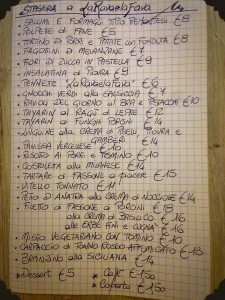 STASERA a LaRavaelaFava
SALUMI E FORMAGGI TIPICI PIEMONTESI €8
POLPETTE DI FAVE €5
TORTINO DI BRA E PATATE CON FONDUTA €8
FAGOTTINI DI MELANZANE €7
FIORI DI ZUCCA IN PASTELLA €9
INSALATINA DI TOURA €9
PENNETTE "LaRavaelaFava" €6
GNOCCHI VERDI ALLA BAVA €7
RAVIOLI DEL GIORNO AL BRA E PISTACCHI €10
TAJARIN AL RAGÙ DI LEPRE €12
TAJARIN AI FUNGHI PORCINI €14
LINGUINE ALLA CREMA DI PISELLI, TOURA E GAMBERI €14
PANISSA VERGNESE €10
RISOTTO AI PORRI E TOMINO €10
COSTOLETTA ALLA MILANESE €14
TARTARE DI FASSONE A PIACERE €15
VITELLO TONNATO €11
PETTO D'ANATRA ALLA CREMA DI NOCCIOLE €14
FILETTO DI FASSONE AI PORCINI €18
ALLA CREMA DI BASILICO €16
ALLE ERBE FINI E COGNAC €16
MISTO VEGETARIANO CON TOMINO €10
CARPACCIO DI TONNO ROSSO AFFUMICATO €13
BRANZINO ALLA SICILIANA €14
*Dessert €5 *Caffè €1,50
*Coperto €1,50